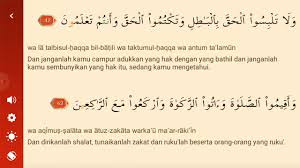 وَلَا تَلْبِسُوا۟ ٱلْحَقَّ بِٱلْبَـٰطِلِ وَتَكْتُمُوا۟ ٱلْحَقَّ وَأَنتُمْ تَعْلَمُونَ
wa lā talbisul-ḥaqqa bil-bāṭili wa taktumul-ḥaqqa wa antum ta'lamūn
Dan janganlah kamu campur adukkan yang hak dengan yang bathil dan janganlah
kamu sembunyikan yang hak itu, sedang kamu mengetahui.
وَأَقِيمُوا۟ ٱلصَّلَوٰةَ وَءَاتُوا۟ ٱلزَّكَوٰةَ وَٱرْكَعُوا۟ مَعَ ٱلرَّٰكِعِينَ
wa aqīmuṣ-ṣalāta wa ātuz-zakāta warka'ū ma'ar-rāki'īn
Dan dirikanlah shalat, tunaikanlah zakat dan ruku'lah beserta orang-orang yang ruku'.